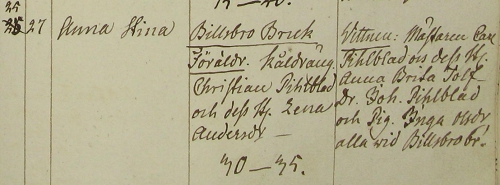 25
25 27 Anna Stina Billsbro Bruk Vittnen: Mästaren Carl
Föräldr. Kåldräng Pihlblad och dess H.
Christian Pihlblad Anna Brita Tolf
och dess H. Lena Dr. Joh. Pihlblad
Andersdr — och Pig. Inga Olsdr
alla wid Billsbro br.
30 — 35.